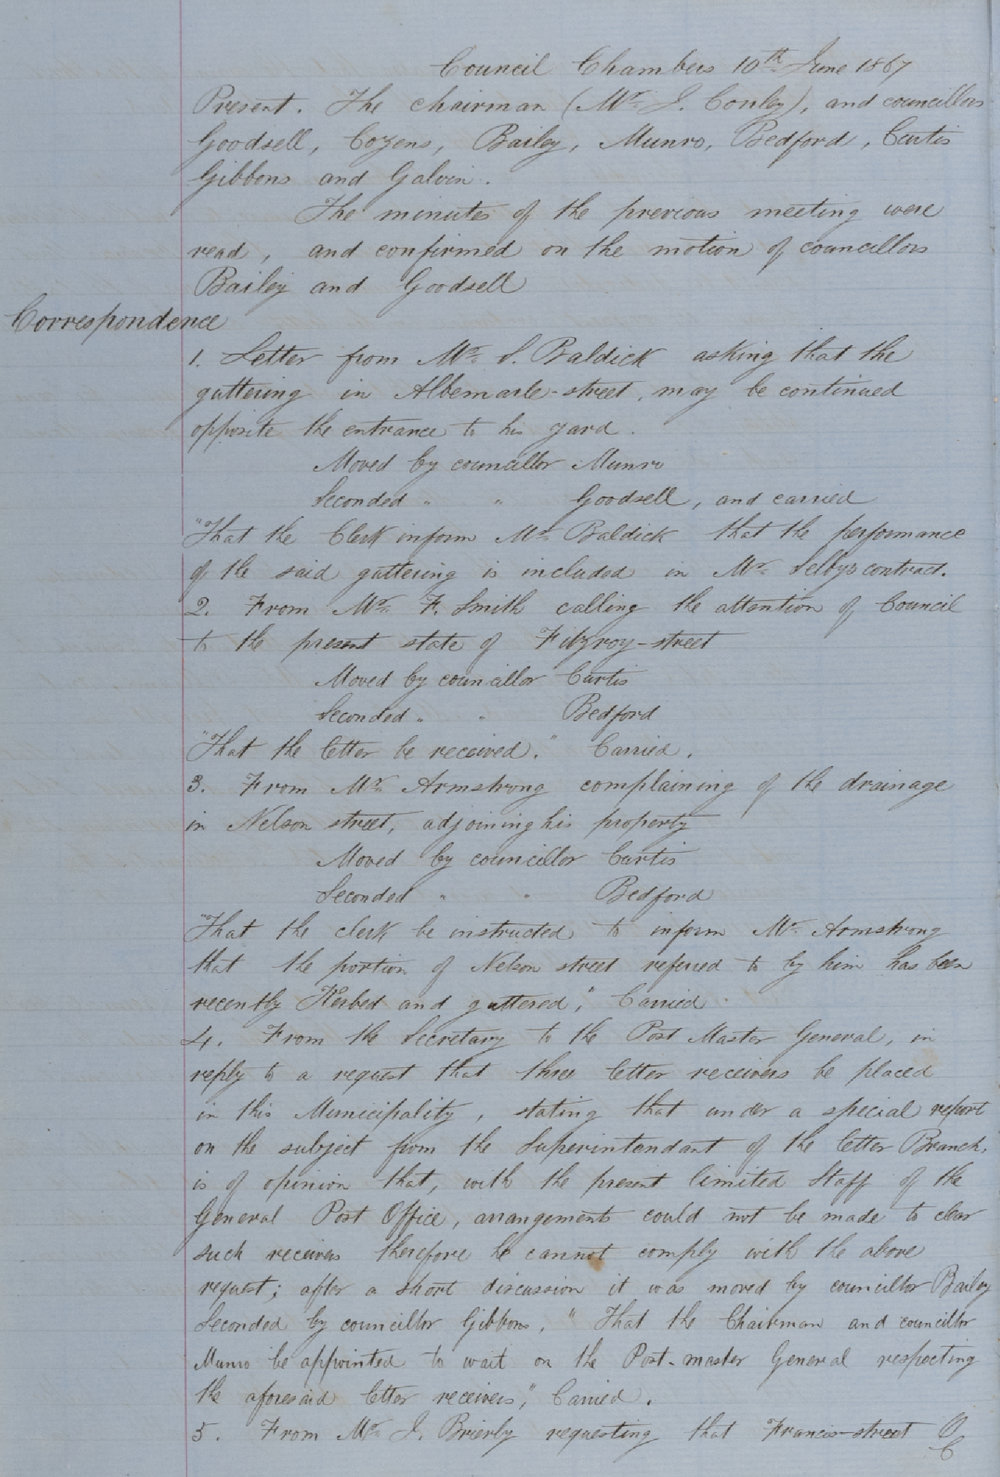 Council Chambers 10th June 1867
Present. The chairman (Mr. J. Conley), and councillors
Goodsell, Cozens, Bailey, Munro, Bedford, Curtis
Gibbons and Galvin.
The minutes of the previous meeting were
read, and confirmed on the motion of councillors
Bailey and Goodsell
Correspondence
1. Letter from Mr. S. Baldick asking that the
guttering in Albemarle-street, may be continued
opposite the entrance to his yard.
Moved by councillor Munro
Seconded " " Goodsell, and carried
"That the Clerk inform Mr. Baldick that the performance
of the said guttering is included in Mr. Selbys contract.
2. From Mr. F. Smith calling the attention of Council
to the present state of Fitzroy-street
Moved by councillor Curtis
Seconded " " Bedford
"That the letter be received." Carried.
3. From Mr. Armstrong complaining of the drainage
in Nelson street, adjoining his property
Moved by councillor Curtis
Seconded " " Bedford
"That the clerk be instructed to inform Mr. Armstrong
that the portion of Nelson street referred to by him has been
recently Kerbed and guttered," Carried.
4. From the Secretary to the Post Master General, in
reply to a request that three letter receivers be placed
in this Municipality, stating that under a special report
on the subject from the Superintendant of the letter Branch,
is of opinion that, with the present limited Staff of the
General Post Office, arrangements could not be made to clear
such receivers therefore he cannot comply with the above
request; after a short discussion it was moved by councillor Bailey
Seconded by councillor Gibbons, "That the Chairman and councillor
Munro be appointed to wait on the Post-master General respecting
the aforesaid letter receivers," Carried.
5. From Mr. J. Brierly requesting that Francis-street